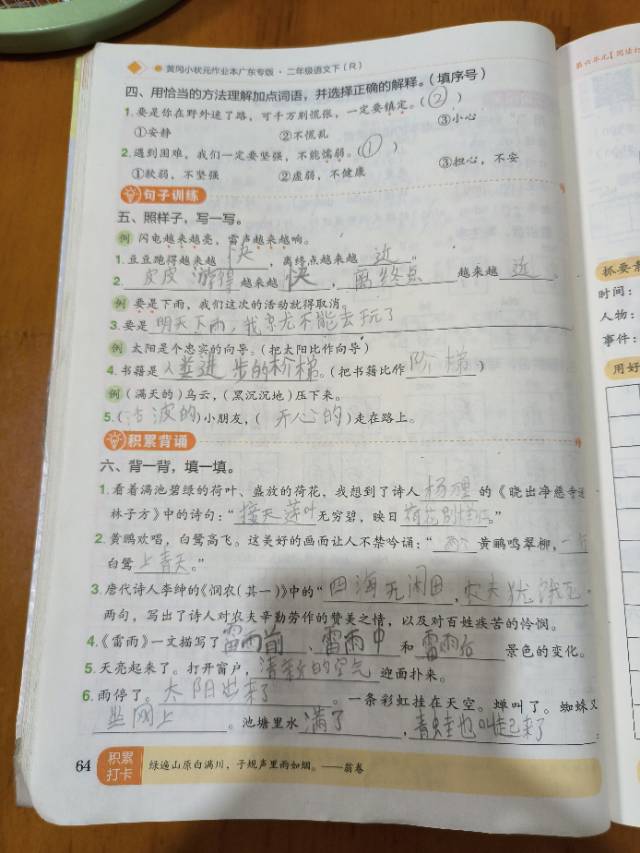 黄冈小状元作业本广东专版·二年级语文下(R)
第六单元
四、用恰当的方法理解加点词语,并选择正确的解释。(填序号)
1.要是你在野外迷了路,可千万别慌张,一定要镇定。(②)
①安静 ②不慌乱 ③小心
2.遇到困难,我们一定要坚强,不能懦弱。(①)
①软弱,不坚强 ②虚弱,不健康 ③担心,不安
句子训练
五、照样子,写一写。
例 闪电越来越亮,雷声越来越响。
1.豆豆跑得越来越快,离终点越来越近。
2.皮皮游得越来越快,离终点越来越近。
例 要是下雨,我们这次的活动就得取消。
3.要是明天下雨,我就不能去玩了
例 太阳是个忠实的向导。(把太阳比作向导)
4.书籍是人类进步的阶梯。(把书籍比作阶梯)
例(满天的)乌云,(黑沉沉地)压下来。
5.(活波的)小朋友,(开心的)走在路上。
积累背诵
六、背一背,填一填。
1.看着满池碧绿的荷叶、盛放的荷花,我想到了诗人杨理的《晓出净慈寺送
林子方》中的诗句:“接天莲叶无穷碧,映日荷花别样红。”
2.黄鹂欢唱,白鹭高飞。这美好的画面让人不禁吟诵:“两个黄鹂鸣翠柳,一行
白鹭上青天。”
3.唐代诗人李绅的《悯农(其一)》中的“四海无闲田,农夫犹饿死”
两句,写出了诗人对农夫辛勤劳作的赞美之情,以及对百姓疾苦的怜悯。
4.《雷雨》一文描写了雷雨前、雷雨中和雷雨后景色的变化。
5.天亮起来了。打开窗户,清新的空气迎面扑来。
6.雨停了。太阳出来了。一条彩虹挂在天空。蝉叫了。蜘蛛又
坐网上。池塘里水满了,青蛙也叫起来了
64 积累打卡 绿遍山原白满川,子规声里雨如烟。——翁卷
抓要素
时间:
人物:
事件:
用好